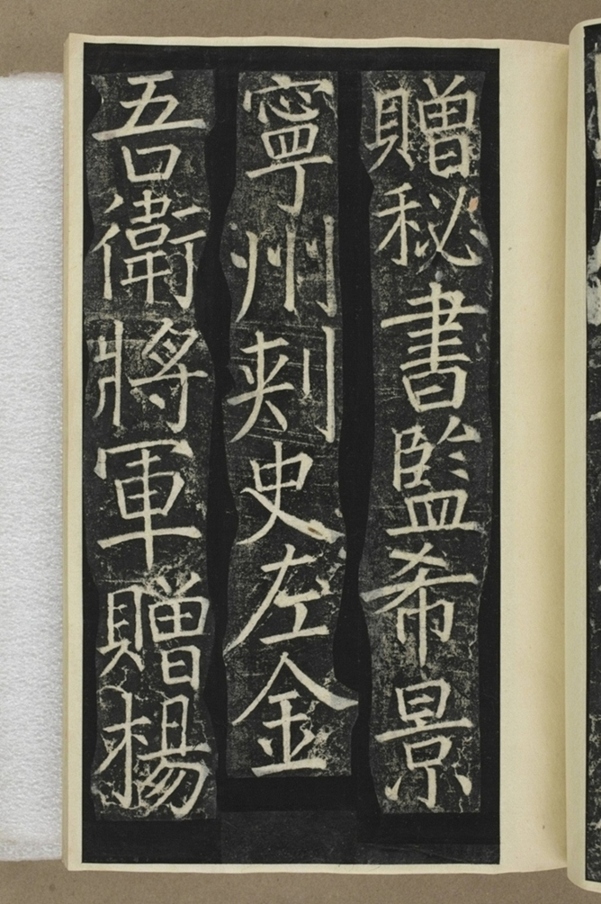 贈秘書監希景
寧州刾史左金
吾衛將軍贈楊